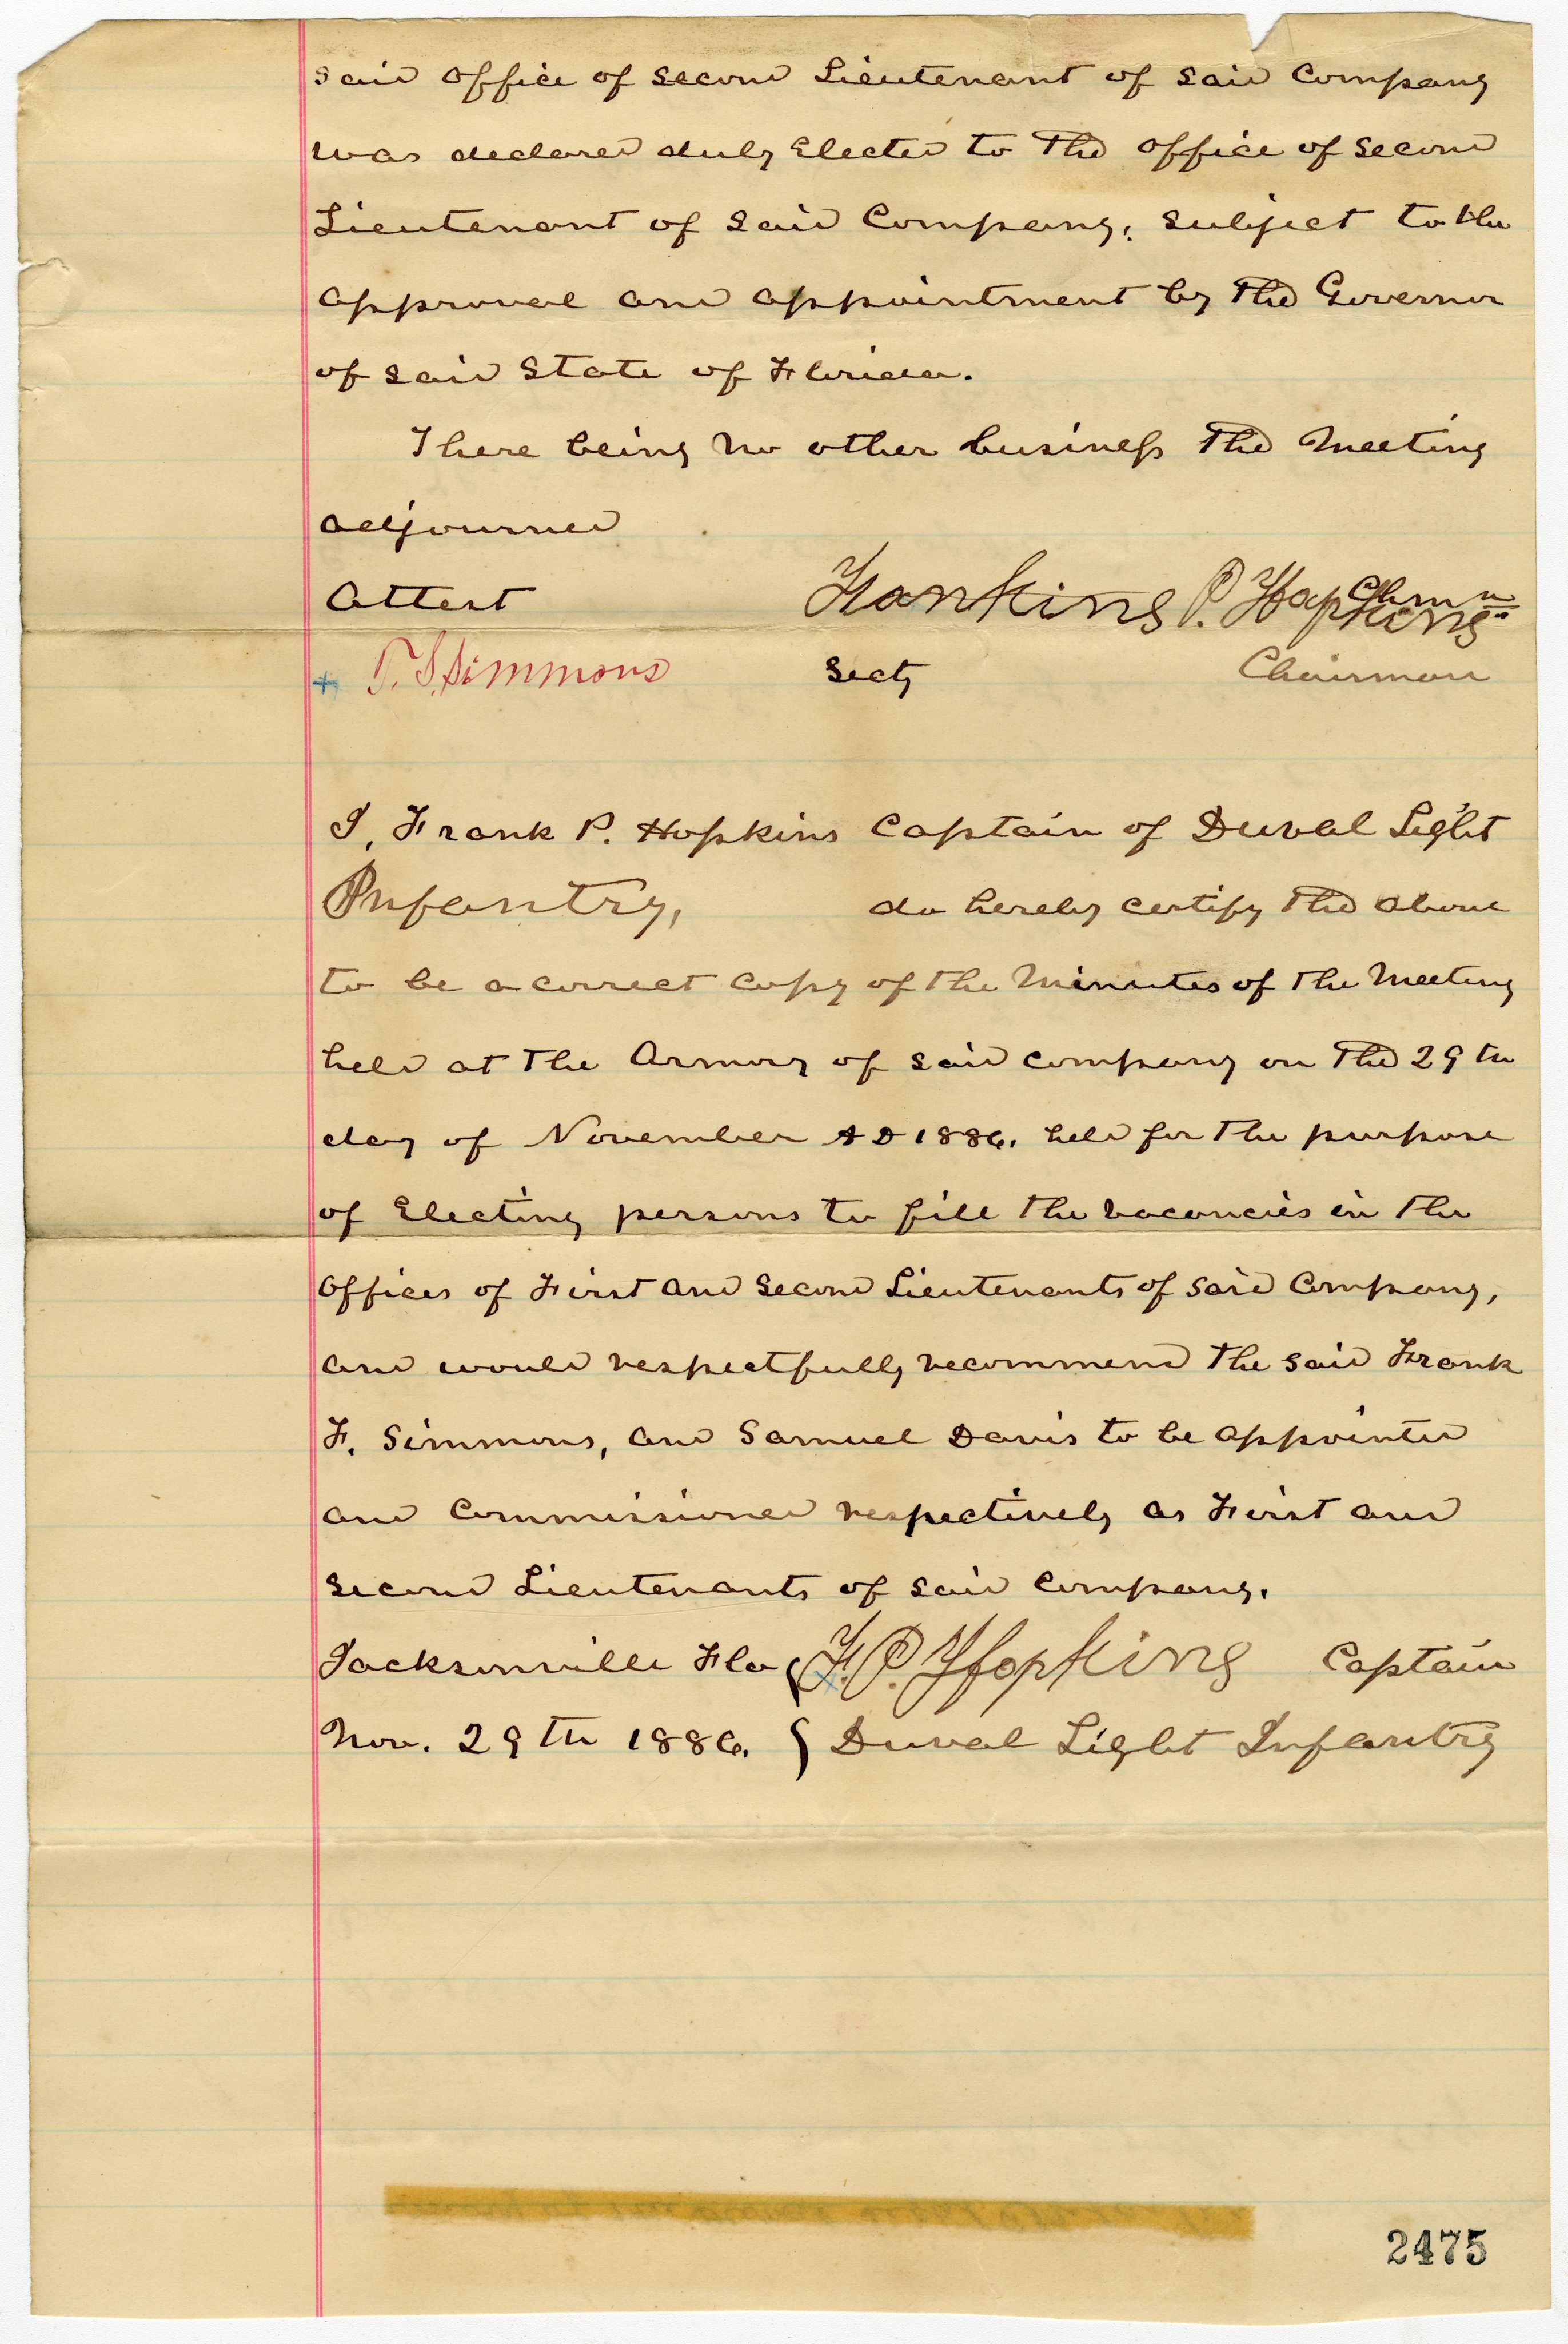 said office of second Lieutenant of said Company
was declared duly Elected to the office of second
Lieutenant of said Company, subject to the
approval and appointment by the Governor
of said State of Florida.
There being no other business the Meeting
adjourned
Attest
P. Hopkins
Chmn
Simmons Secty Chairman
I, Frank P. Hopkins Captain of Duval Light
Infantry, do hereby certify the above
to be a correct copy of the Minutes of the Meeting
held at the Armory of said company on the 29th
day of November AD 1886. held for the purpose
of Electing persons to fill the vacancies in the
offices of First and Second Lieutenants of said Company,
and would respectfully recommend the said Frank
F. Simmons, and Samuel Davis to be appointed
and Commissioned respectively as First and
Second Lieutenants of said Company.
Jacksonville Fla { F. P. Hopkins Captain
Nov. 29th 1886. { Duval Light Infantry
2475